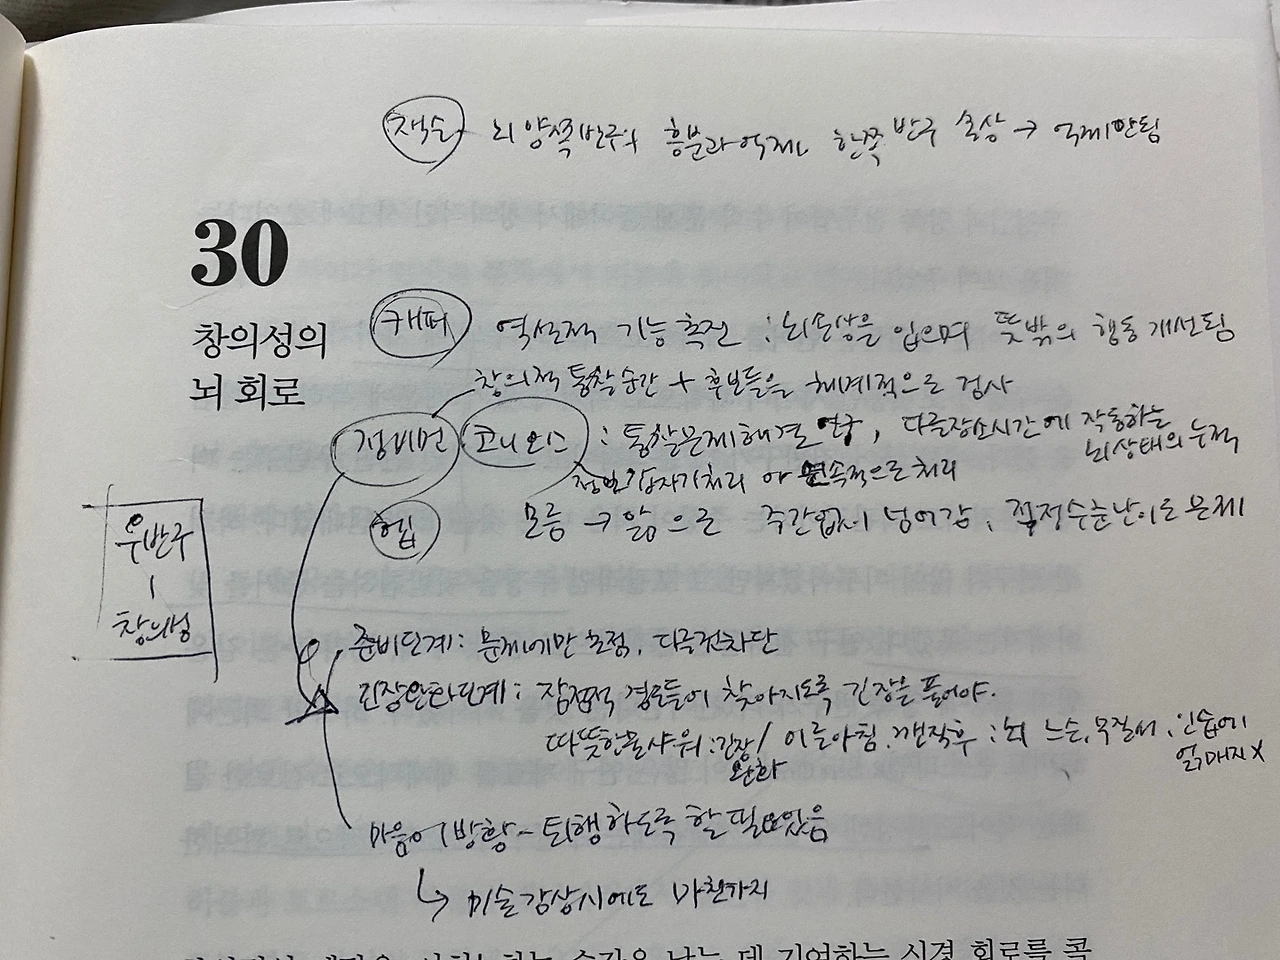 잭슨 뇌 양쪽 반구 흥분과 억제 한쪽 반구 손상 → 억제안됨
30
창의성의
뇌 회로
캐퍼 역설적 기능 촉진 : 뇌손상을 입으며 뜻밖의 행동 개선됨
창의적 통찰 순간 + 후보들을 체계적으로 검사
정비먼 코니오스 : 통찰문제해결 연구, 다른장소시간에 작동하는
뇌상태의 누적
정보 갑자기처리 or 연속적으로 처리
헵 모름 → 앎으로 중간없이 넘어감, 적정수준난이도 문제
우반구
|
창의성
준비단계 : 문제에만 초점, 다른것차단
긴장완화단계 : 잠정적 경로들이 찾아지도록 긴장을 풀어야.
따뜻한물샤워 : 긴장완화 / 이른아침.깬직후 : 뇌 느슨, 무질서, 인습에
얽매이지 X
마음이 방황~퇴행하도록 할 필요있음
↳ 미술감상시에도 마찬가지